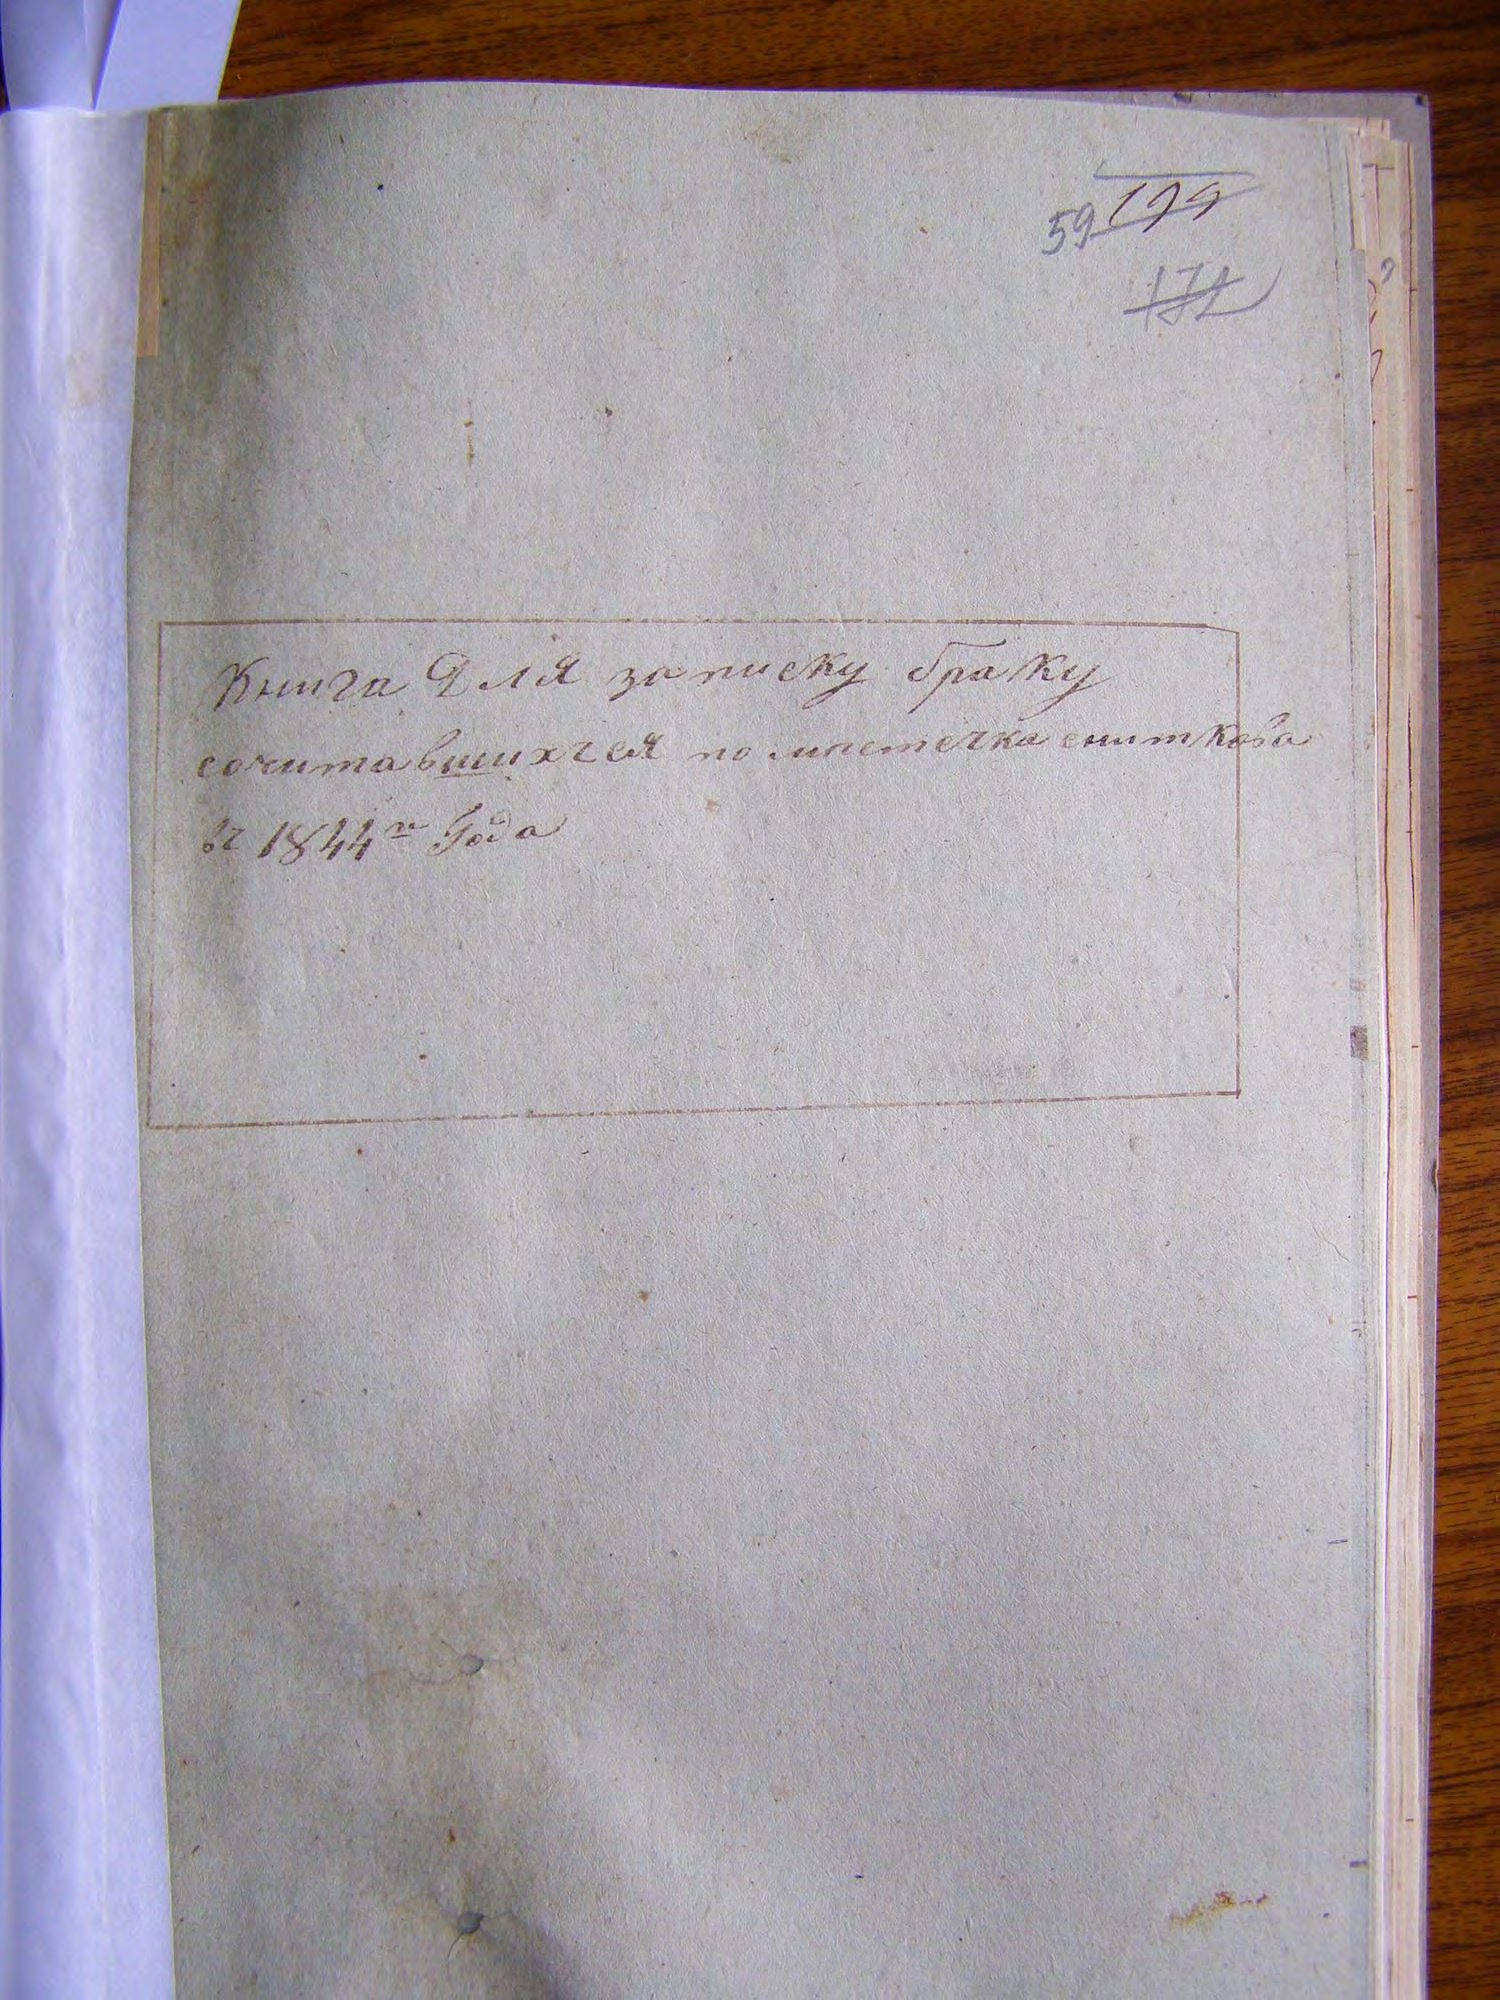 59 199
172
Книга Для записку браку
сочитавшихъся по местечка сниткова
въ 1844го Года